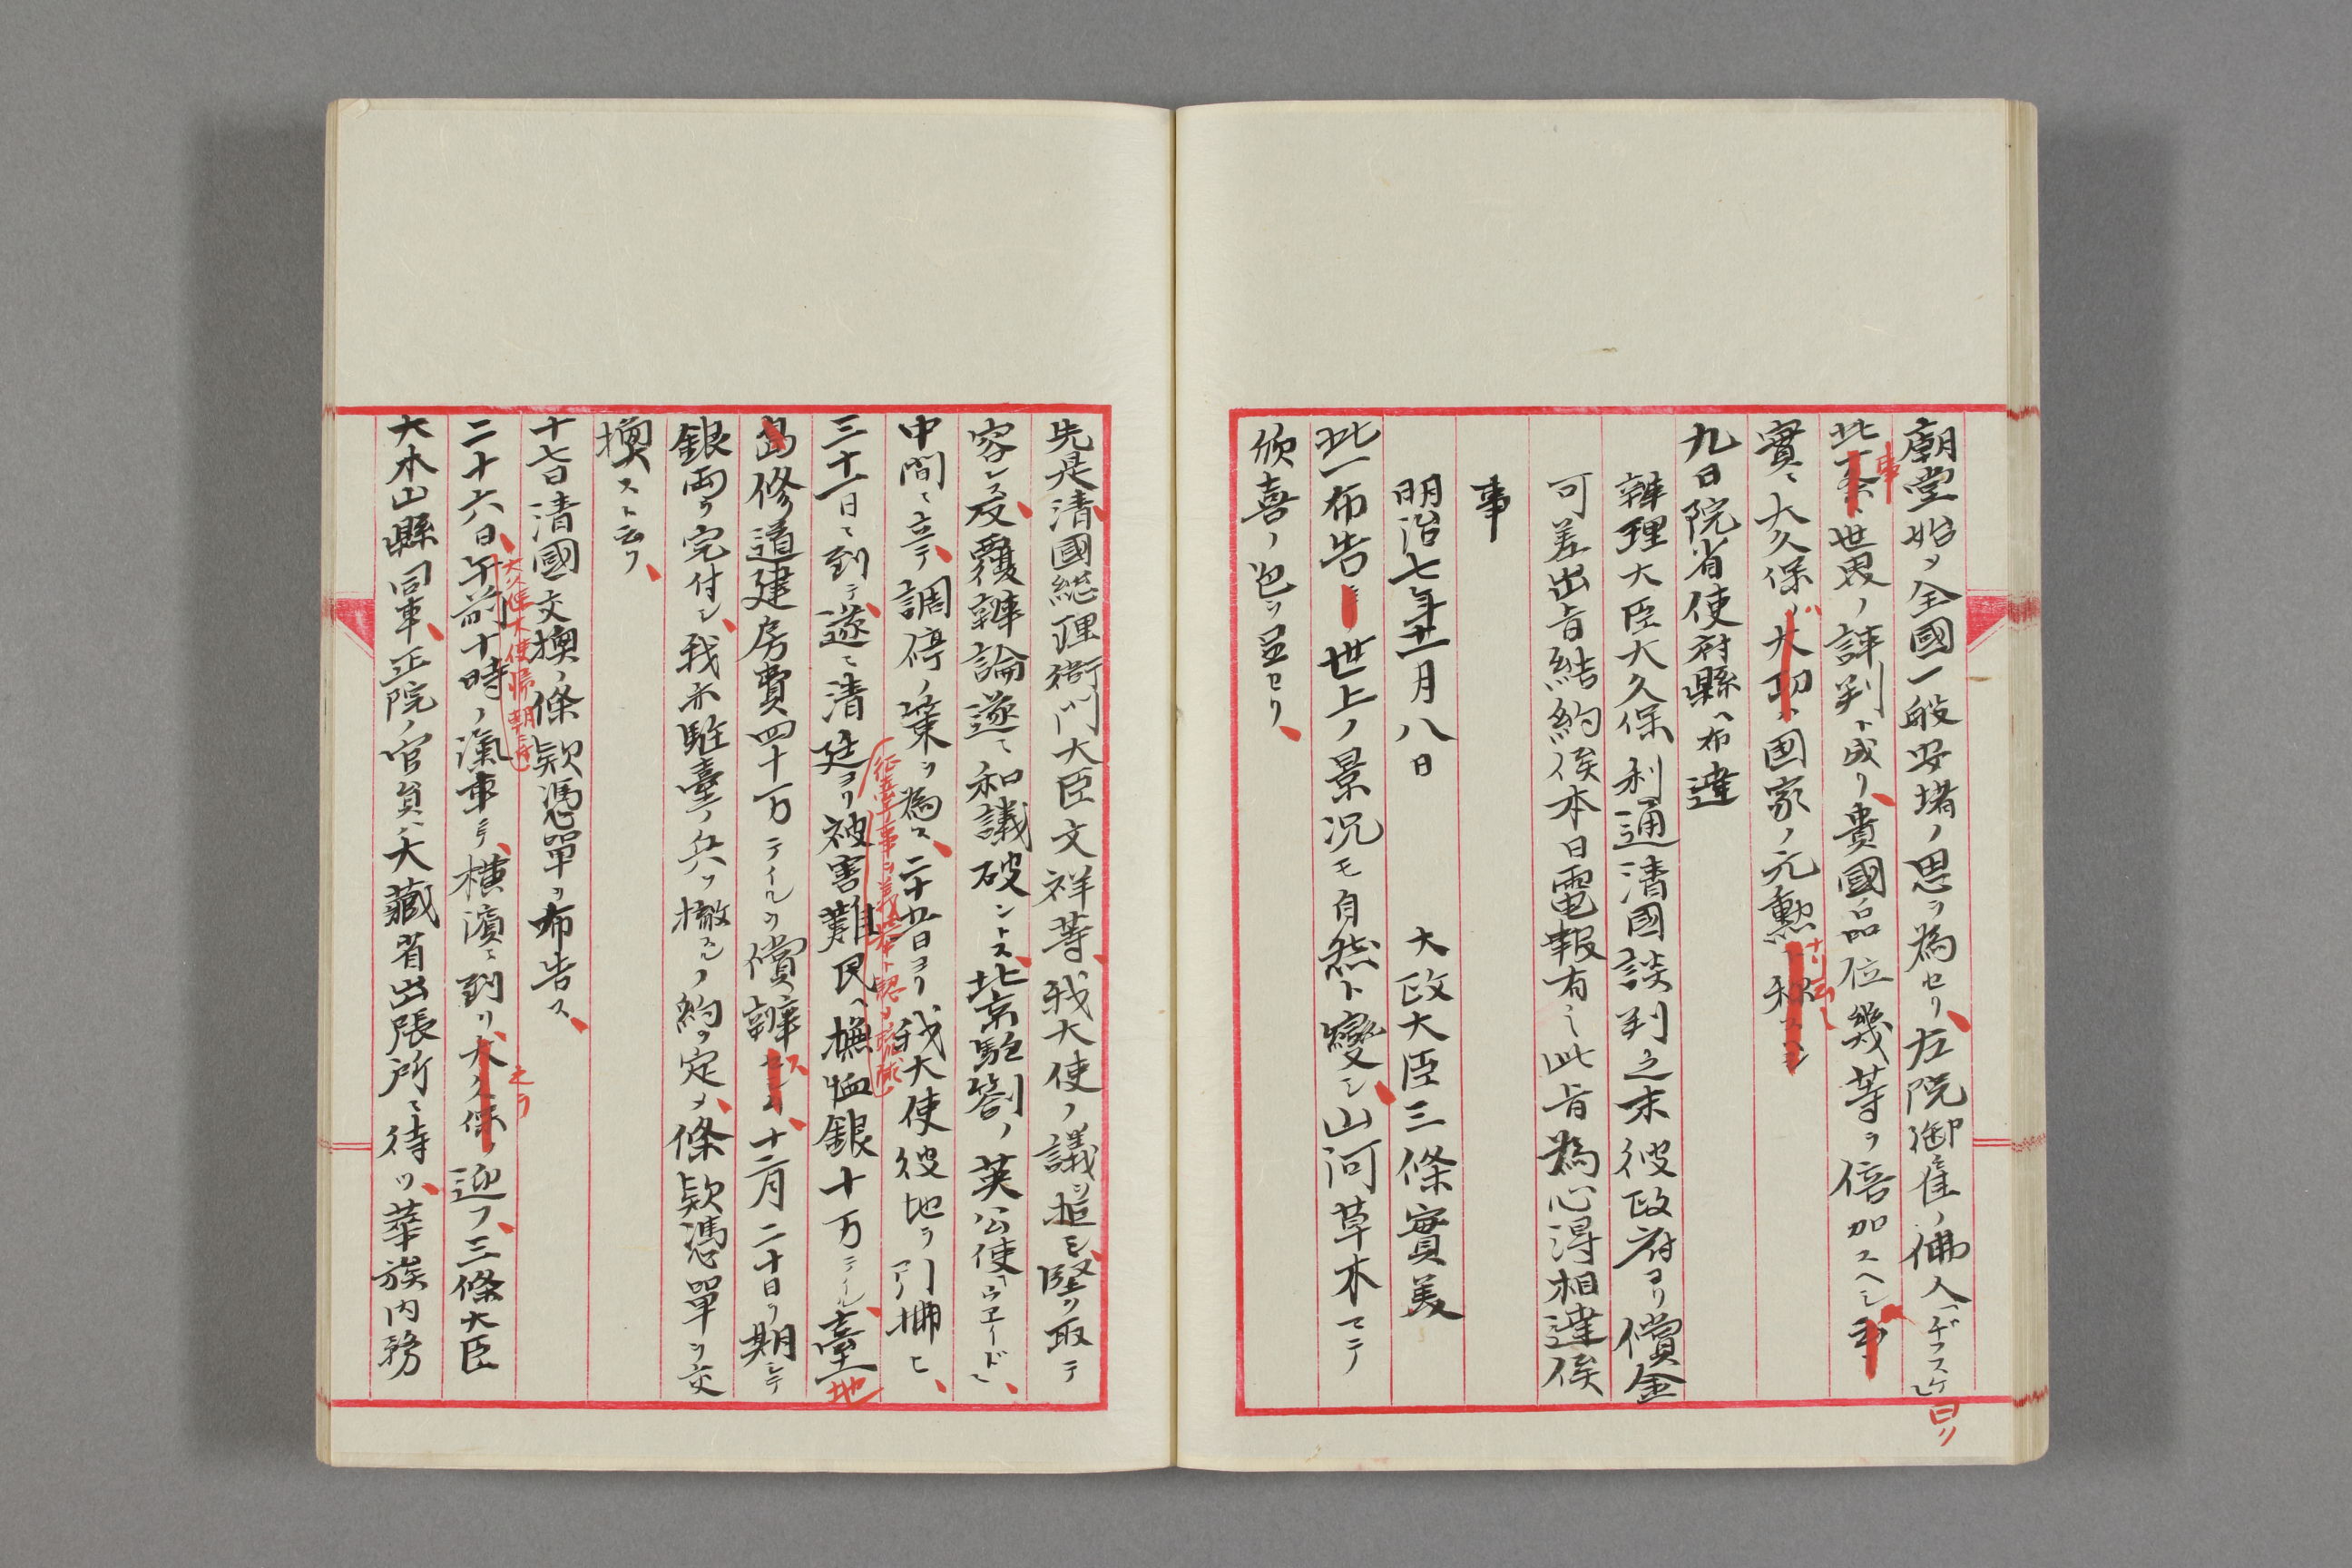 廟堂始メ全國一般安堵ノ思ヲ為セリ、左院御雇ノ佛人「ヂブスケ」曰ク
此事世界ノ評判ト成リ、貴國品位幾等ヲ倍加スヘシ
實ニ大久保ノ大功ハ國家ノ元勲
九日院省使府縣ヘ布達
辨理大臣大久保利通清國談判之末彼政府ヨリ償金
可差出旨結約候本日電報有之此旨為心得相達候
事
明治七年十一月八日
大政大臣三條實美
此一布告世上ノ景況モ自然ト變シ、山河草木マテ
頗喜ノ色ヲ呈セリ、
先是清國総理衙門大臣文祥等、我大使ノ議ヲ拒ミ、堅ク取テ
容レス、反覆辨論遂ニ和議破ントス、北京駐劄ノ英公使「ウエード」、
中間ニ立テ、調停ノ策ヲ為ス、二十五日ヨリ我大使彼地ヲ引拂ヒ、
征臺ノ事ヲ義擧ト認
三十一日ニ到テ、遂ニ清廷ヨリ被害難民ヘ撫恤銀十万テイル、臺地
修道建房費四十万テイルヲ償辨ス、十二月二十日ヲ期シテ
銀両ヲ完付シ、我亦駐臺ノ兵ヲ撤スルノ約ヲ定メ、條欵憑單ヲ交
換スト云フ、
十七日清國交換ノ條欵憑單ヲ布告ス、
大久保大使帰朝ニ付
二十六日、午前十時ノ滊車ニテ、横濱ニ到リ之ヲ迎フ、三條大臣
大木山縣同車、正院ノ官員ハ大藏省出張所ニ待ツ、華族内務